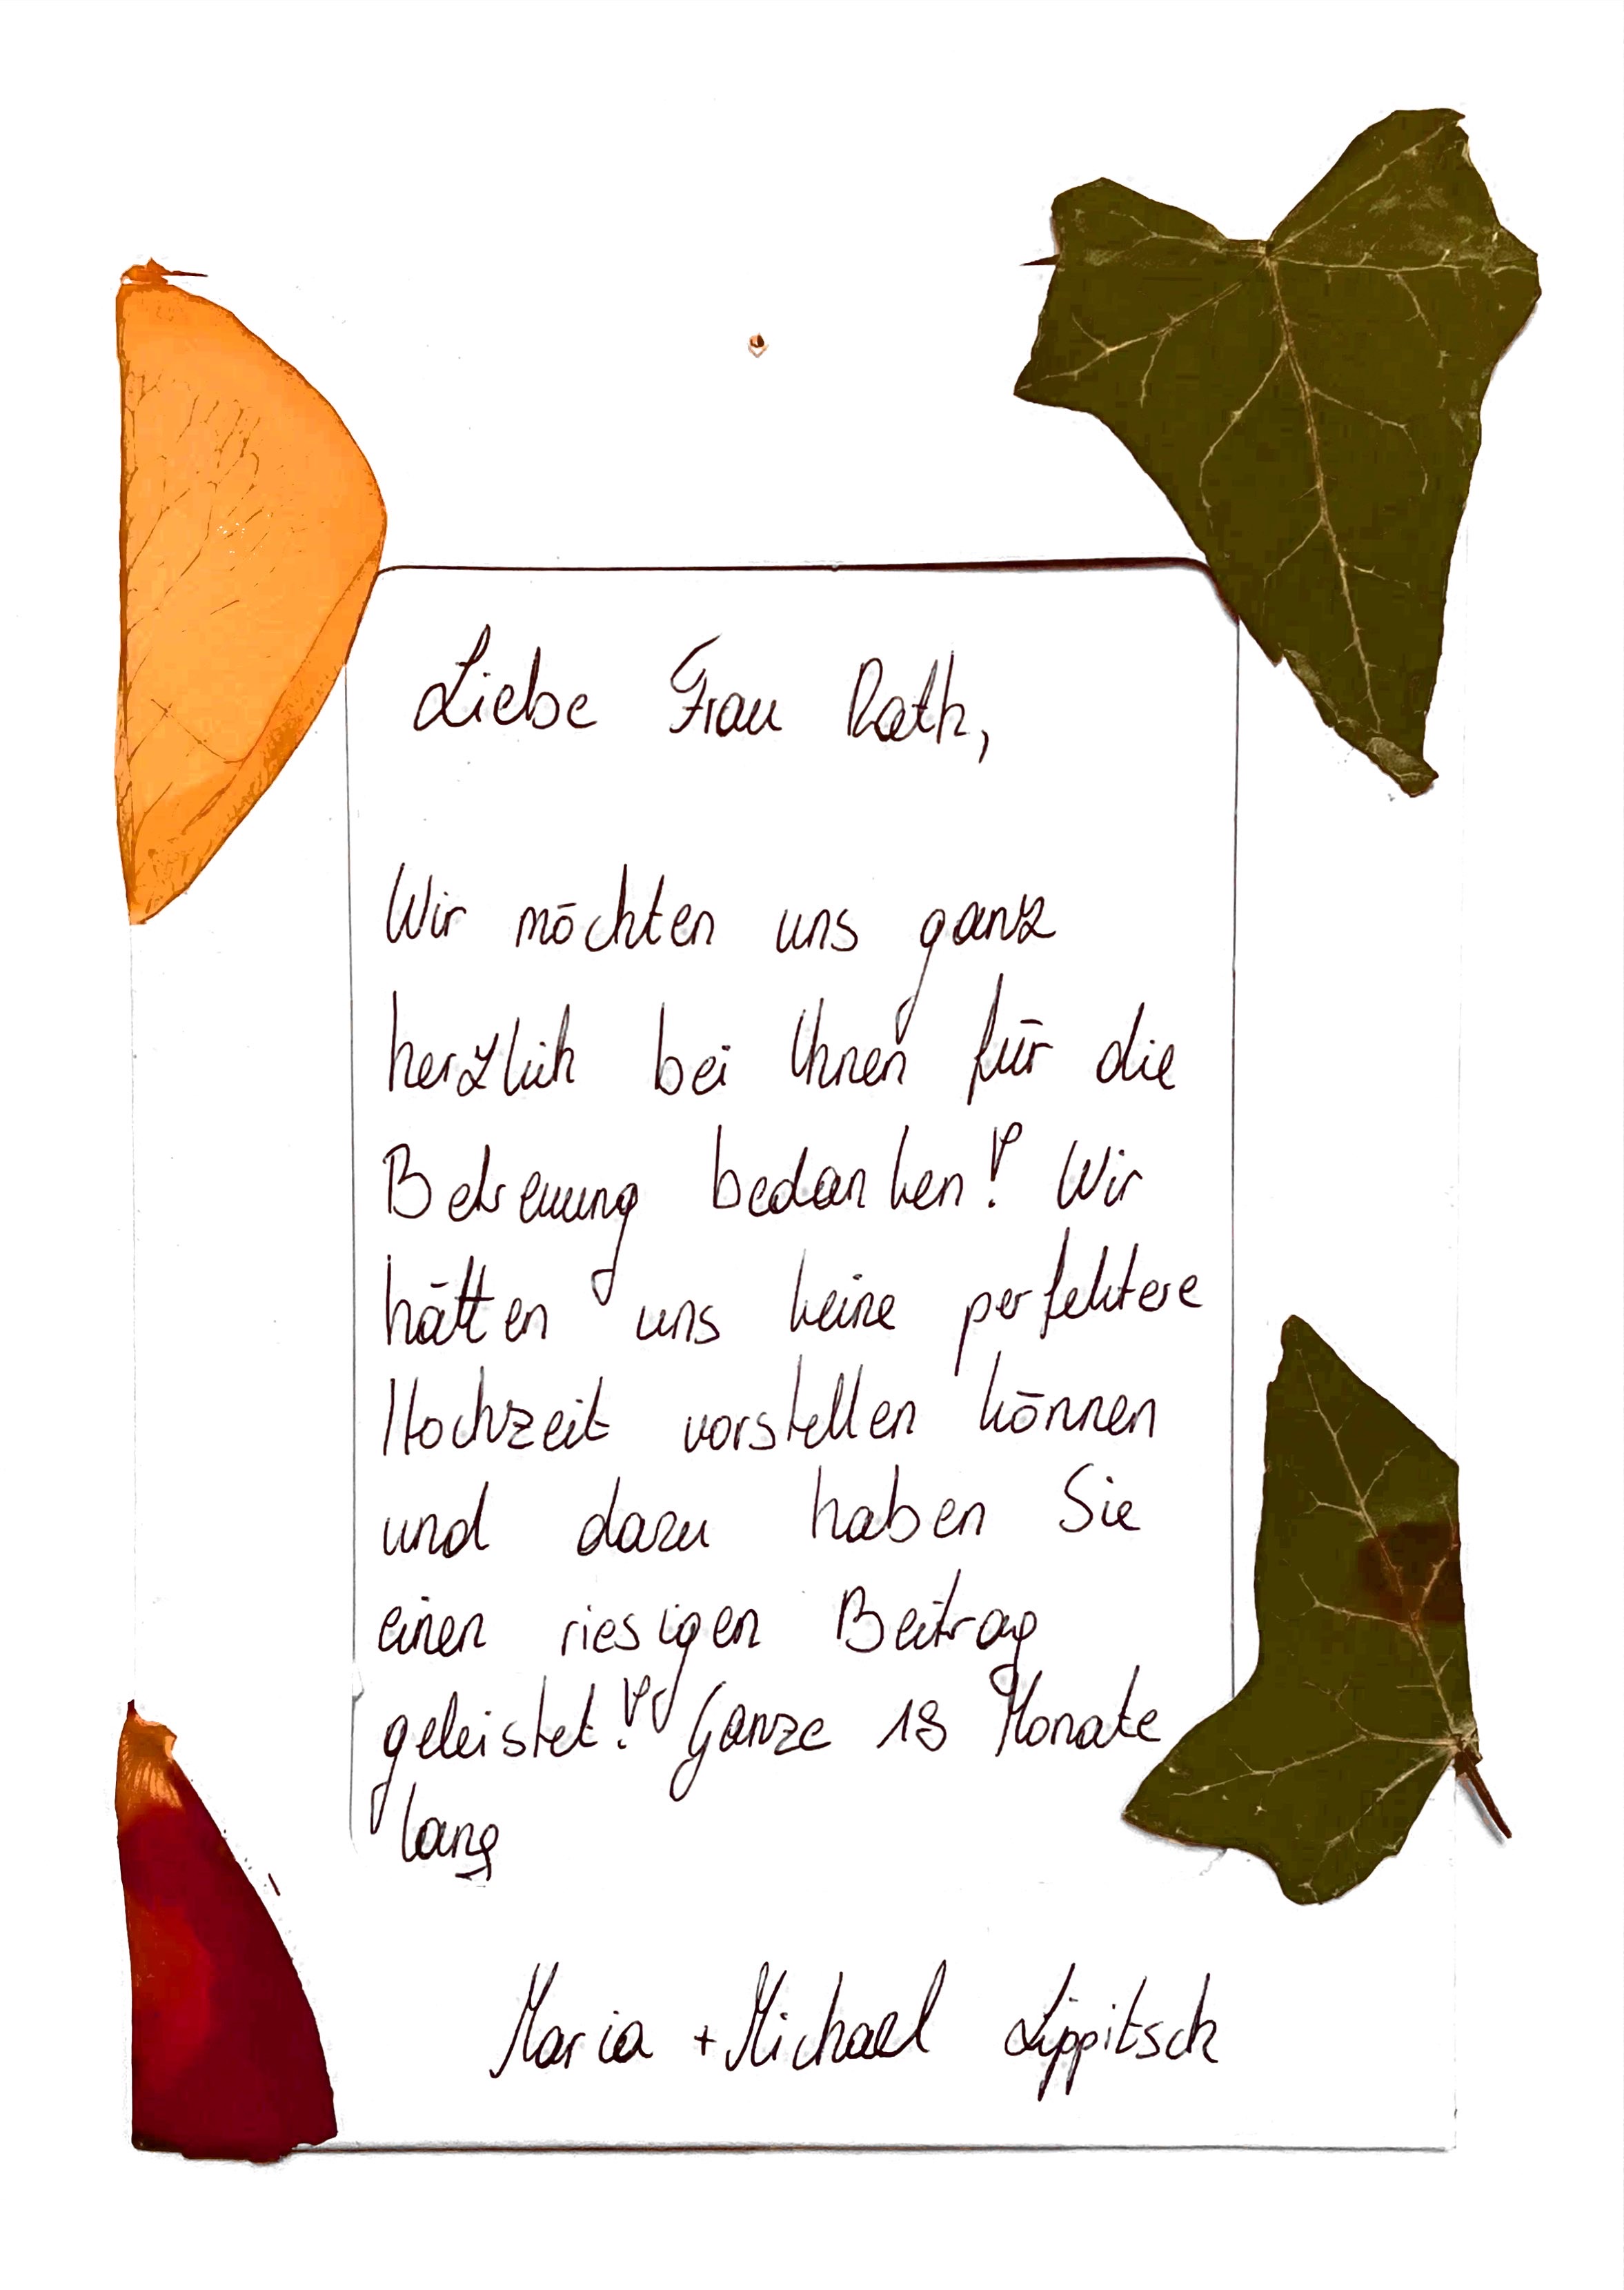 Liebe Frau Rath,
Wir möchten uns ganz
herzlich bei Ihnen für die
Betreuung bedanken! Wir
hätten uns keine perfektere
Hochzeit vorstellen können
und dazu haben Sie
einen riesigen Beitrag
geleistet! Ganze 18 Monate
lang
Maria + Michael Lippitsch